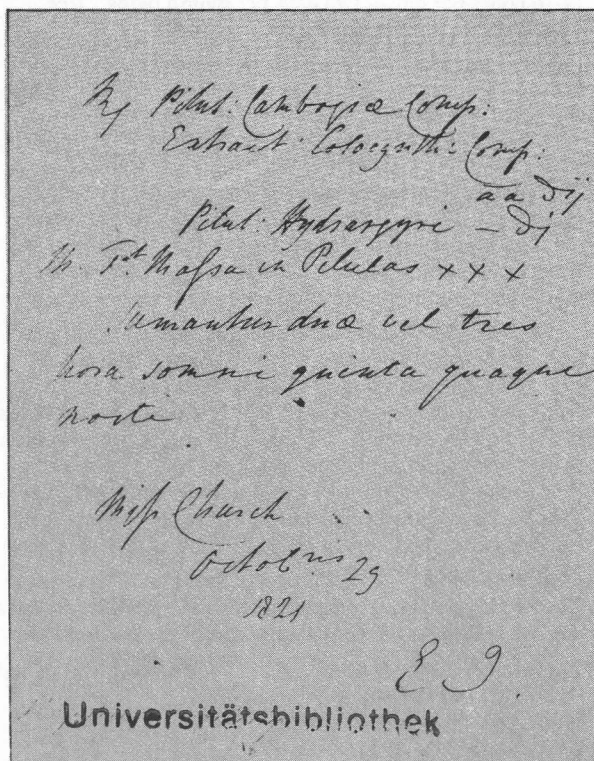 ℞ Pilul: Cambogiæ Comp:
Extract: Colocynth: Comp:
aa ℈ij
Pilul: Hydrargyri – ℈j
M. Ft. Massa in Pilulas xxx
Sumantur duæ vel tres
hora somni quinta quaque
nocte
Miss Church
Octobris 29
1821
Universitätsbibliothek